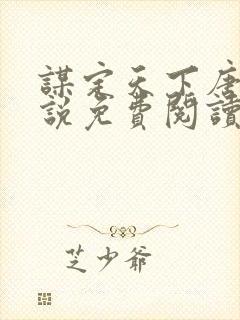 謀定天下唐
說免費閱讀
芝少爺